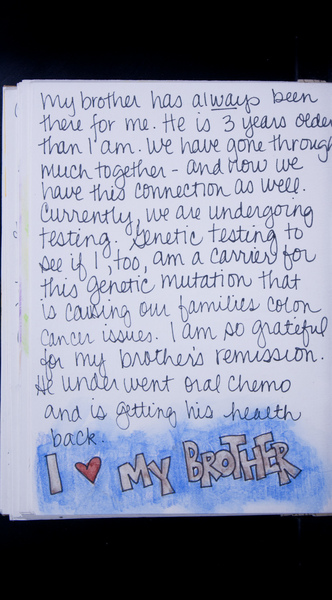 My brother has always been
there for me. He is 3 years older
than I am. We have gone through
much together - and now we
have this connection as well.
Currently, we are undergoing
testing. Genetic testing to
see if I, too, am a carrier for
this genetic mutation that
is causing our families colon
cancer issues. I am so grateful
for my brother's remission.
He underwent oral chemo
and is getting his health
back.
I ♥ MY BROTHER